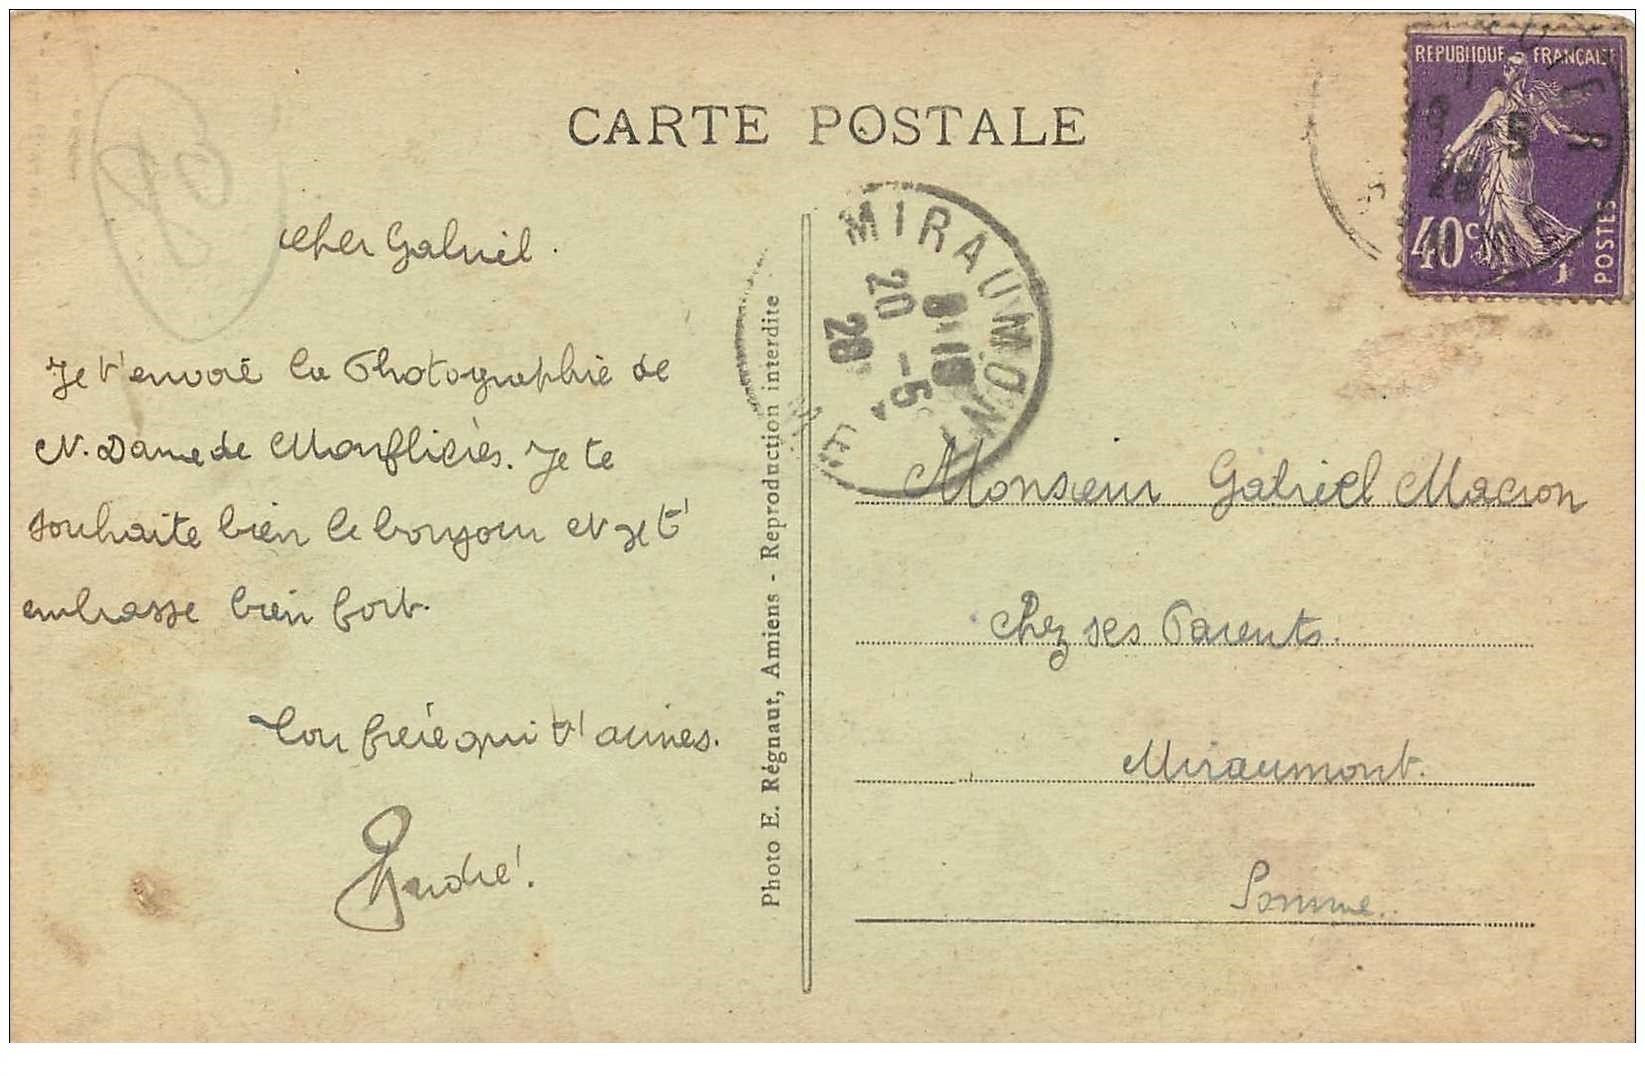 CARTE POSTALE
REPUBLIQUE FRANÇAISE
40c
POSTES
MIRAUMONT
8-15
20 -5
28
Cher Gabriel.
Je t'envoie la Photographie de
N. Dame de Monflières. Je te
souhaite bien le bonjour et je t'
embrasse bien fort.
Ton frère qui t'aimes.
André.
Photo E. Régnaut, Amiens - Reproduction interdite
Monsieur Gabriel Macron
Chez ses Parents.
Miraumont.
Somme.